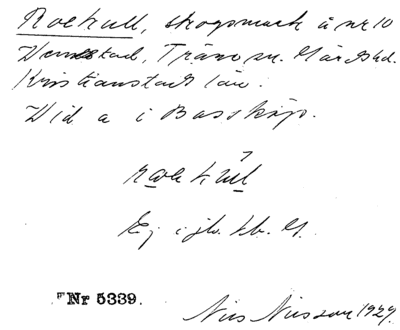 Roekull, skogsmark å nr 10
Vennestad, Träne sn. Gärds hd.
Kristianstads län.
Vid a i Basskåp.
roe kùl
Ej i jb. G.
Nr 5339.
Nils Nilsson 1927.